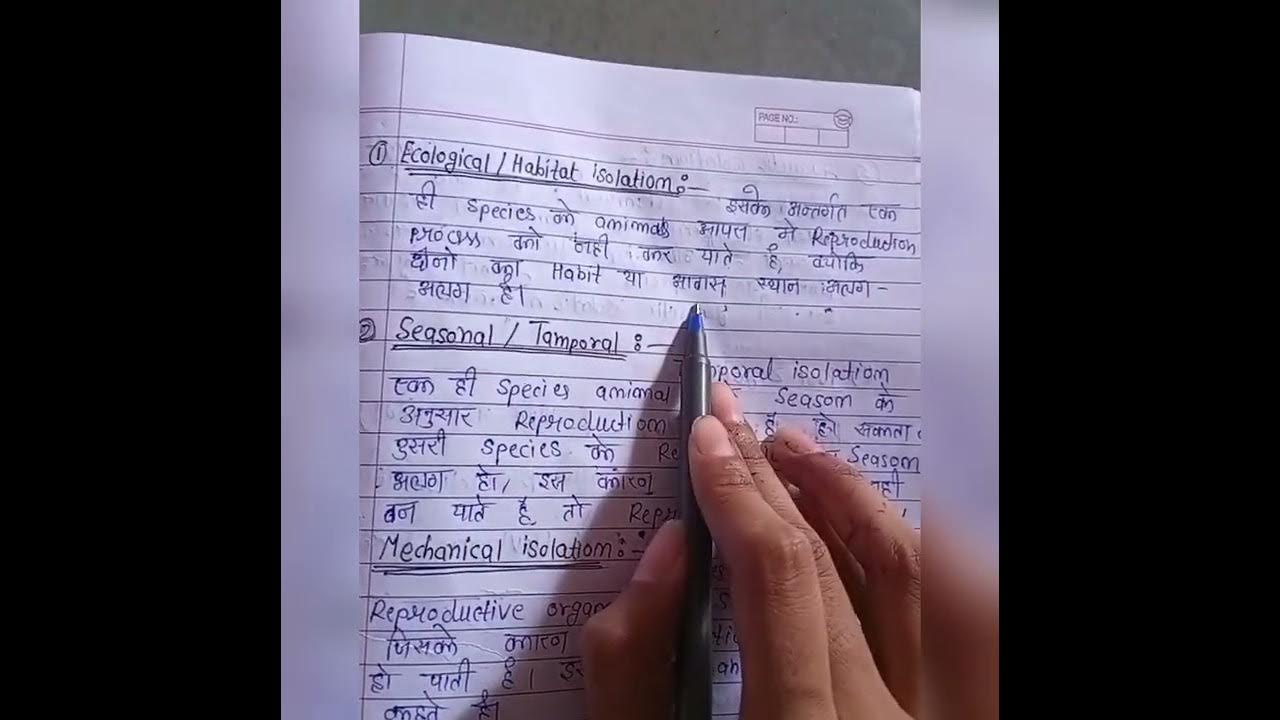 PAGE NO.:
① Ecological / Habitat isolation:— इसके अन्तर्गत एक
ही species के animals आपस मे Reproduction
process को नही कर पाते है, क्योकि
दोनो का Habit या आवास स्थान अलग-
अलग है।
② Seasonal / Tamporal :—
isolation
एक ही species animal Season के
अनुसार Reproduction है, हो सकता
दुसरी species के Season
अलग हो, इस कारण नही
बन पाते है, तो
Mechanical isolation:-
Reproductive
जिसके कारण
हो पाती है।
कहते है।